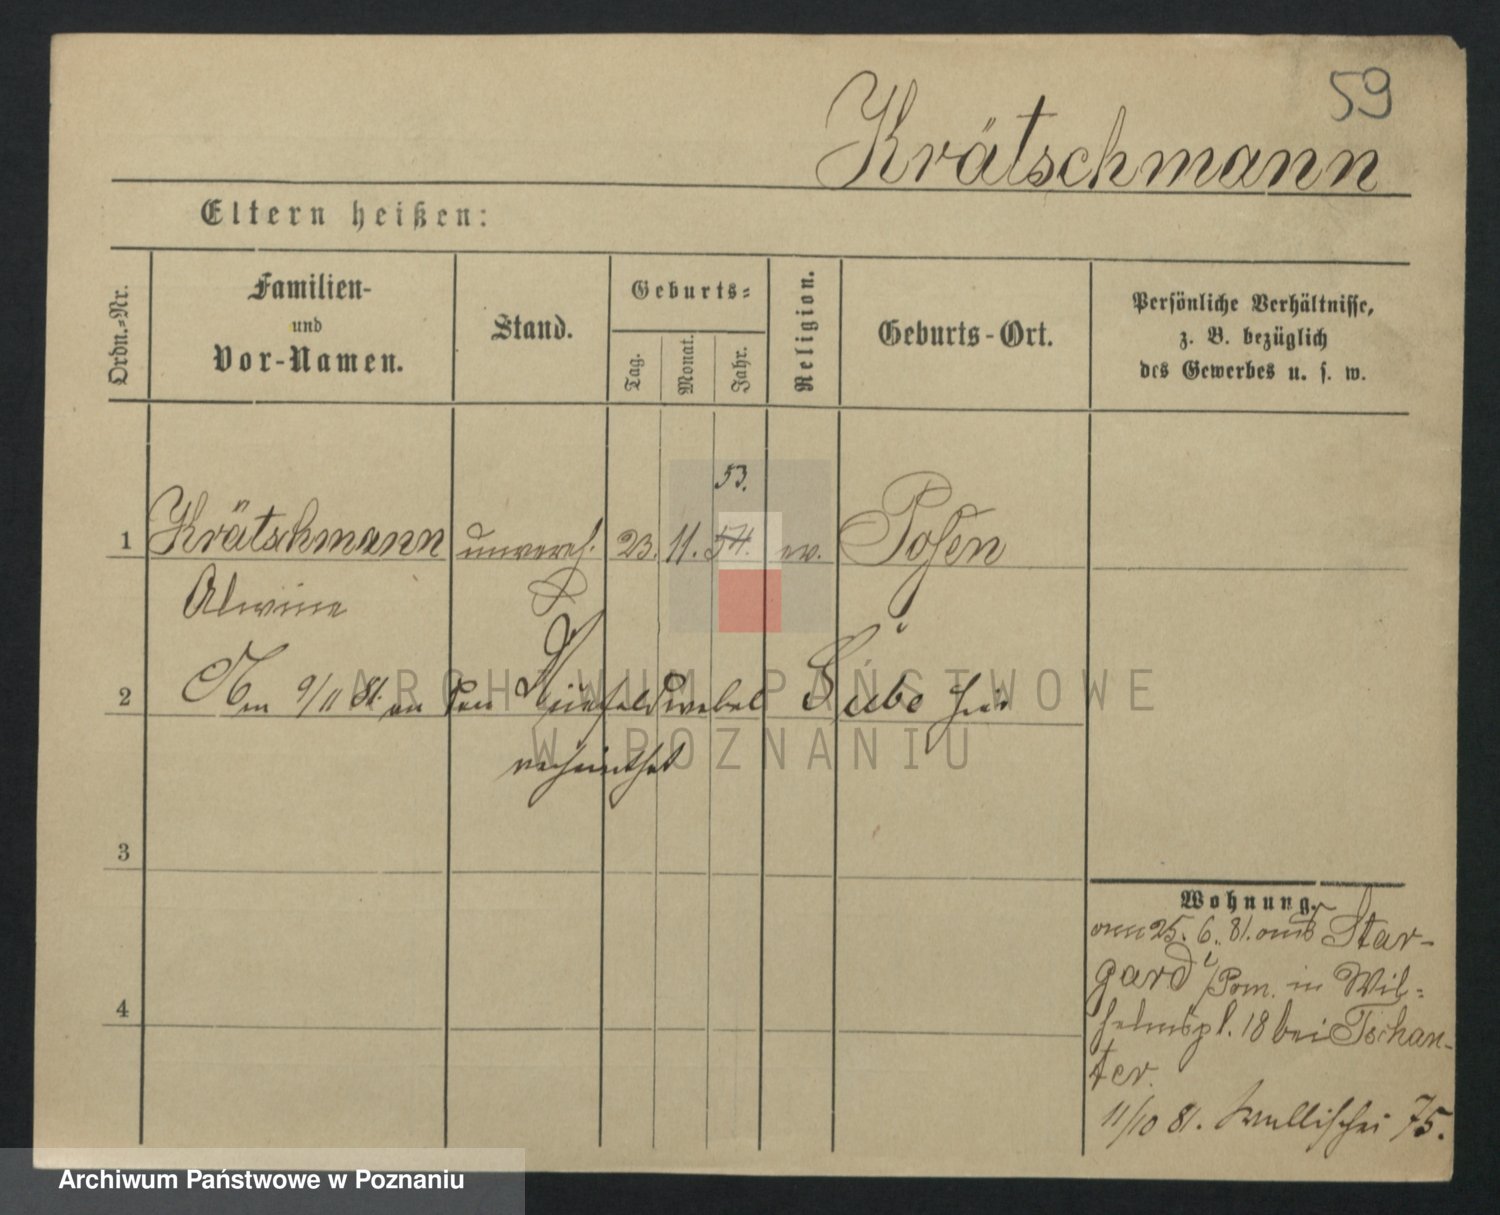 59
Krätschmann
Eltern heißen:
Ordn.=Nr.
Familien-
und
Vor-Namen.
Stand.
Geburts=
Tag.
Monat.
Jahr.
Religion.
Geburts-Ort.
Persönliche Verhältnisse,
z. B. bezüglich
des Gewerbes u. s. w.
53.
1 Krätschmann unvereh. 23. 11. 54. ev. Posen
Alwine
2 Am 9/11 81. an den Vicefeldwebel hier
verheirathet
3
4
Wohnung.
am 25. 6. 81. aus Star-
gard i/Pom. in Wil=
helmspl. 18 bei Tschan-
ter.
11/10 81. Wallischei 75.
ARCHIWUM PAŃSTWOWE
W POZNANIU
Archiwum Państwowe w Poznaniu